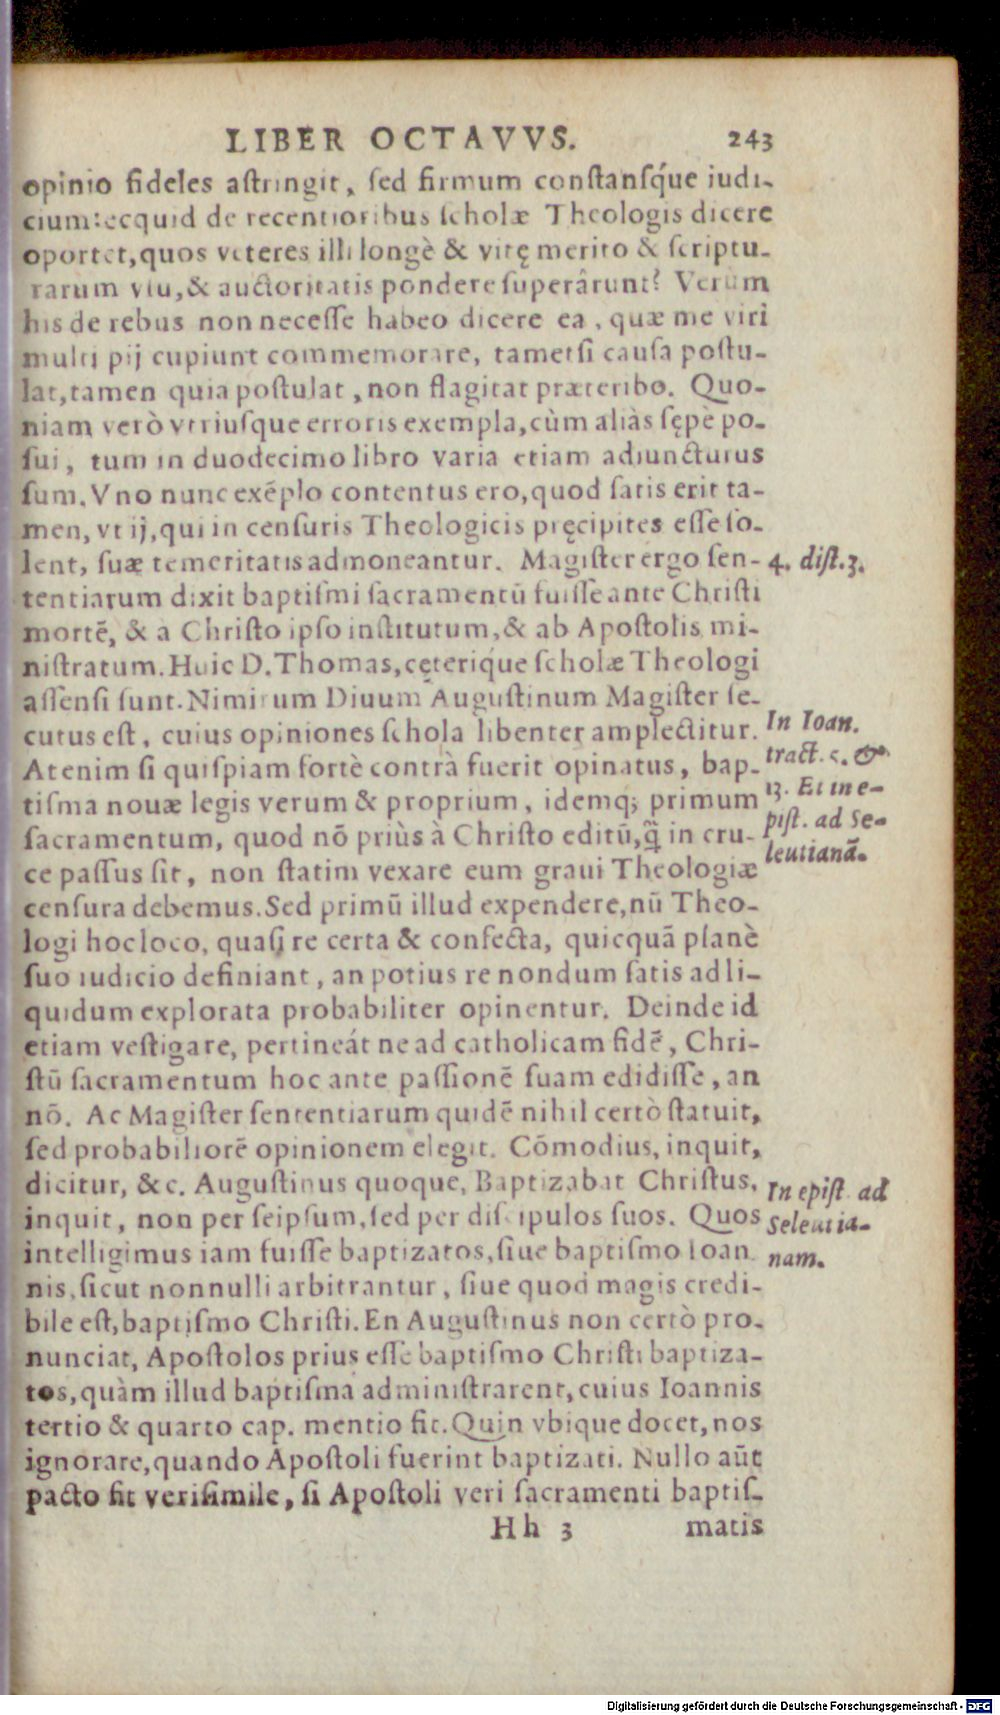 LIBER OCTAVVS. 243
opinio fideles astringit, sed firmum constansq́ue iudi-
cium: ecquid de recentioribus scholæ Theologis dicere
oportet, quos veteres illi longè & vitę merito & scriptu-
rarum vsu, & auctoritatis pondere superârunt? Verùm
his de rebus non necesse habeo dicere ea, quæ me viri
multi pij cupiunt commemorare, tametsi causa postu-
lat, tamen quia postulat, non flagitat præteribo. Quo-
niam verò vtriusque erroris exempla, cùm aliàs sępè po-
sui, tum in duodecimo libro varia etiam adiuncturus
sum. Vno nunc exẽplo contentus ero, quod satis erit ta-
men, vt ij, qui in censuris Theologicis pręcipites esse so-
lent, suæ temeritatis admoneantur. Magister ergo sen-
4. dist. 3.
tentiarum dixit baptismi sacramentũ fuisse ante Christi
mortẽ, & a Christo ipso institutum, & ab Apostolis mi-
nistratum. Huic D. Thomas, cęteriq́ue scholæ Theologi
assensi sunt. Nimirum Diuum Augustinum Magister se-
cutus est, cuius opiniones schola libenter amplectitur.
In Ioan.
tract. 5. &
13. Et in e-
pist. ad Se-
leutianã.
Atenim si quispiam fortè contrà fuerit opinatus, bap-
tisma nouæ legis verum & proprium, idemq; primum
sacramentum, quod nõ priùs à Christo editũ, q̃ in cru-
ce passus sit, non statim vexare eum graui Theologiæ
censura debemus. Sed primũ illud expendere, nũ Theo-
logi hoc loco, quasi re certa & confecta, quicquã planè
suo iudicio definiant, an potius re nondum satis ad li-
quidum explorata probabiliter opinentur. Deinde id
etiam vestigare, pertineát ne ad catholicam fidẽ, Chri-
stũ sacramentum hoc ante passionẽ suam edidisse, an
nõ. Ac Magister sententiarum quidẽ nihil certò statuit,
sed probabiliorẽ opinionem elegit. Cõmodius, inquit,
dicitur, &c. Augustinus quoque, Baptizabat Christus,
In epist. ad
Seleutia-
nam.
inquit, non per seipsum, sed per discipulos suos. Quos
intelligimus iam fuisse baptizatos, siue baptismo Ioan
nis, sicut nonnulli arbitrantur, siue quod magis credi-
bile est, baptismo Christi. En Augustinus non certò pro-
nunciat, Apostolos prius esse baptismo Christi baptiza-
tos, quàm illud baptisma administrarent, cuius Ioannis
tertio & quarto cap. mentio fit. Quin vbique docet, nos
ignorare, quando Apostoli fuerint baptizati. Nullo aũt
pacto fit verisimile, si Apostoli veri sacramenti baptis-
Hh 3 matis
Digitalisierung gefördert durch die Deutsche Forschungsgemeinschaft - DFG